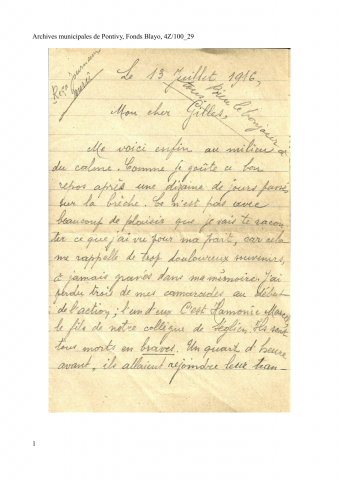 Archives municipales de Pontivy, Fonds Blayo, 4Z/100_29
Reçu journaux
Le 13 Juillet 1916,
bien le bonjour
Mon cher Gilles,
Me voici enfin au milieu
du calme. Comme je goûte ce bon
repos après une dizaine de jours passés
sur la brèche. Ce n'est pas avec
beaucoup de plaisir que je vais te racon
ter ce que j'ai vu pour ma part, car cela
me rappelle de trop douloureux souvenirs,
à jamais gravés dans ma mémoire. J'ai
perdu trois de mes camarades au début
de l'action ; l'un d'eux C'est Hamonic
le fils de notre collègue de Séglien. Ils sont
tous morts en braves. Un quart d'heure
avant, ils allaient rejoindre leur tran-
1